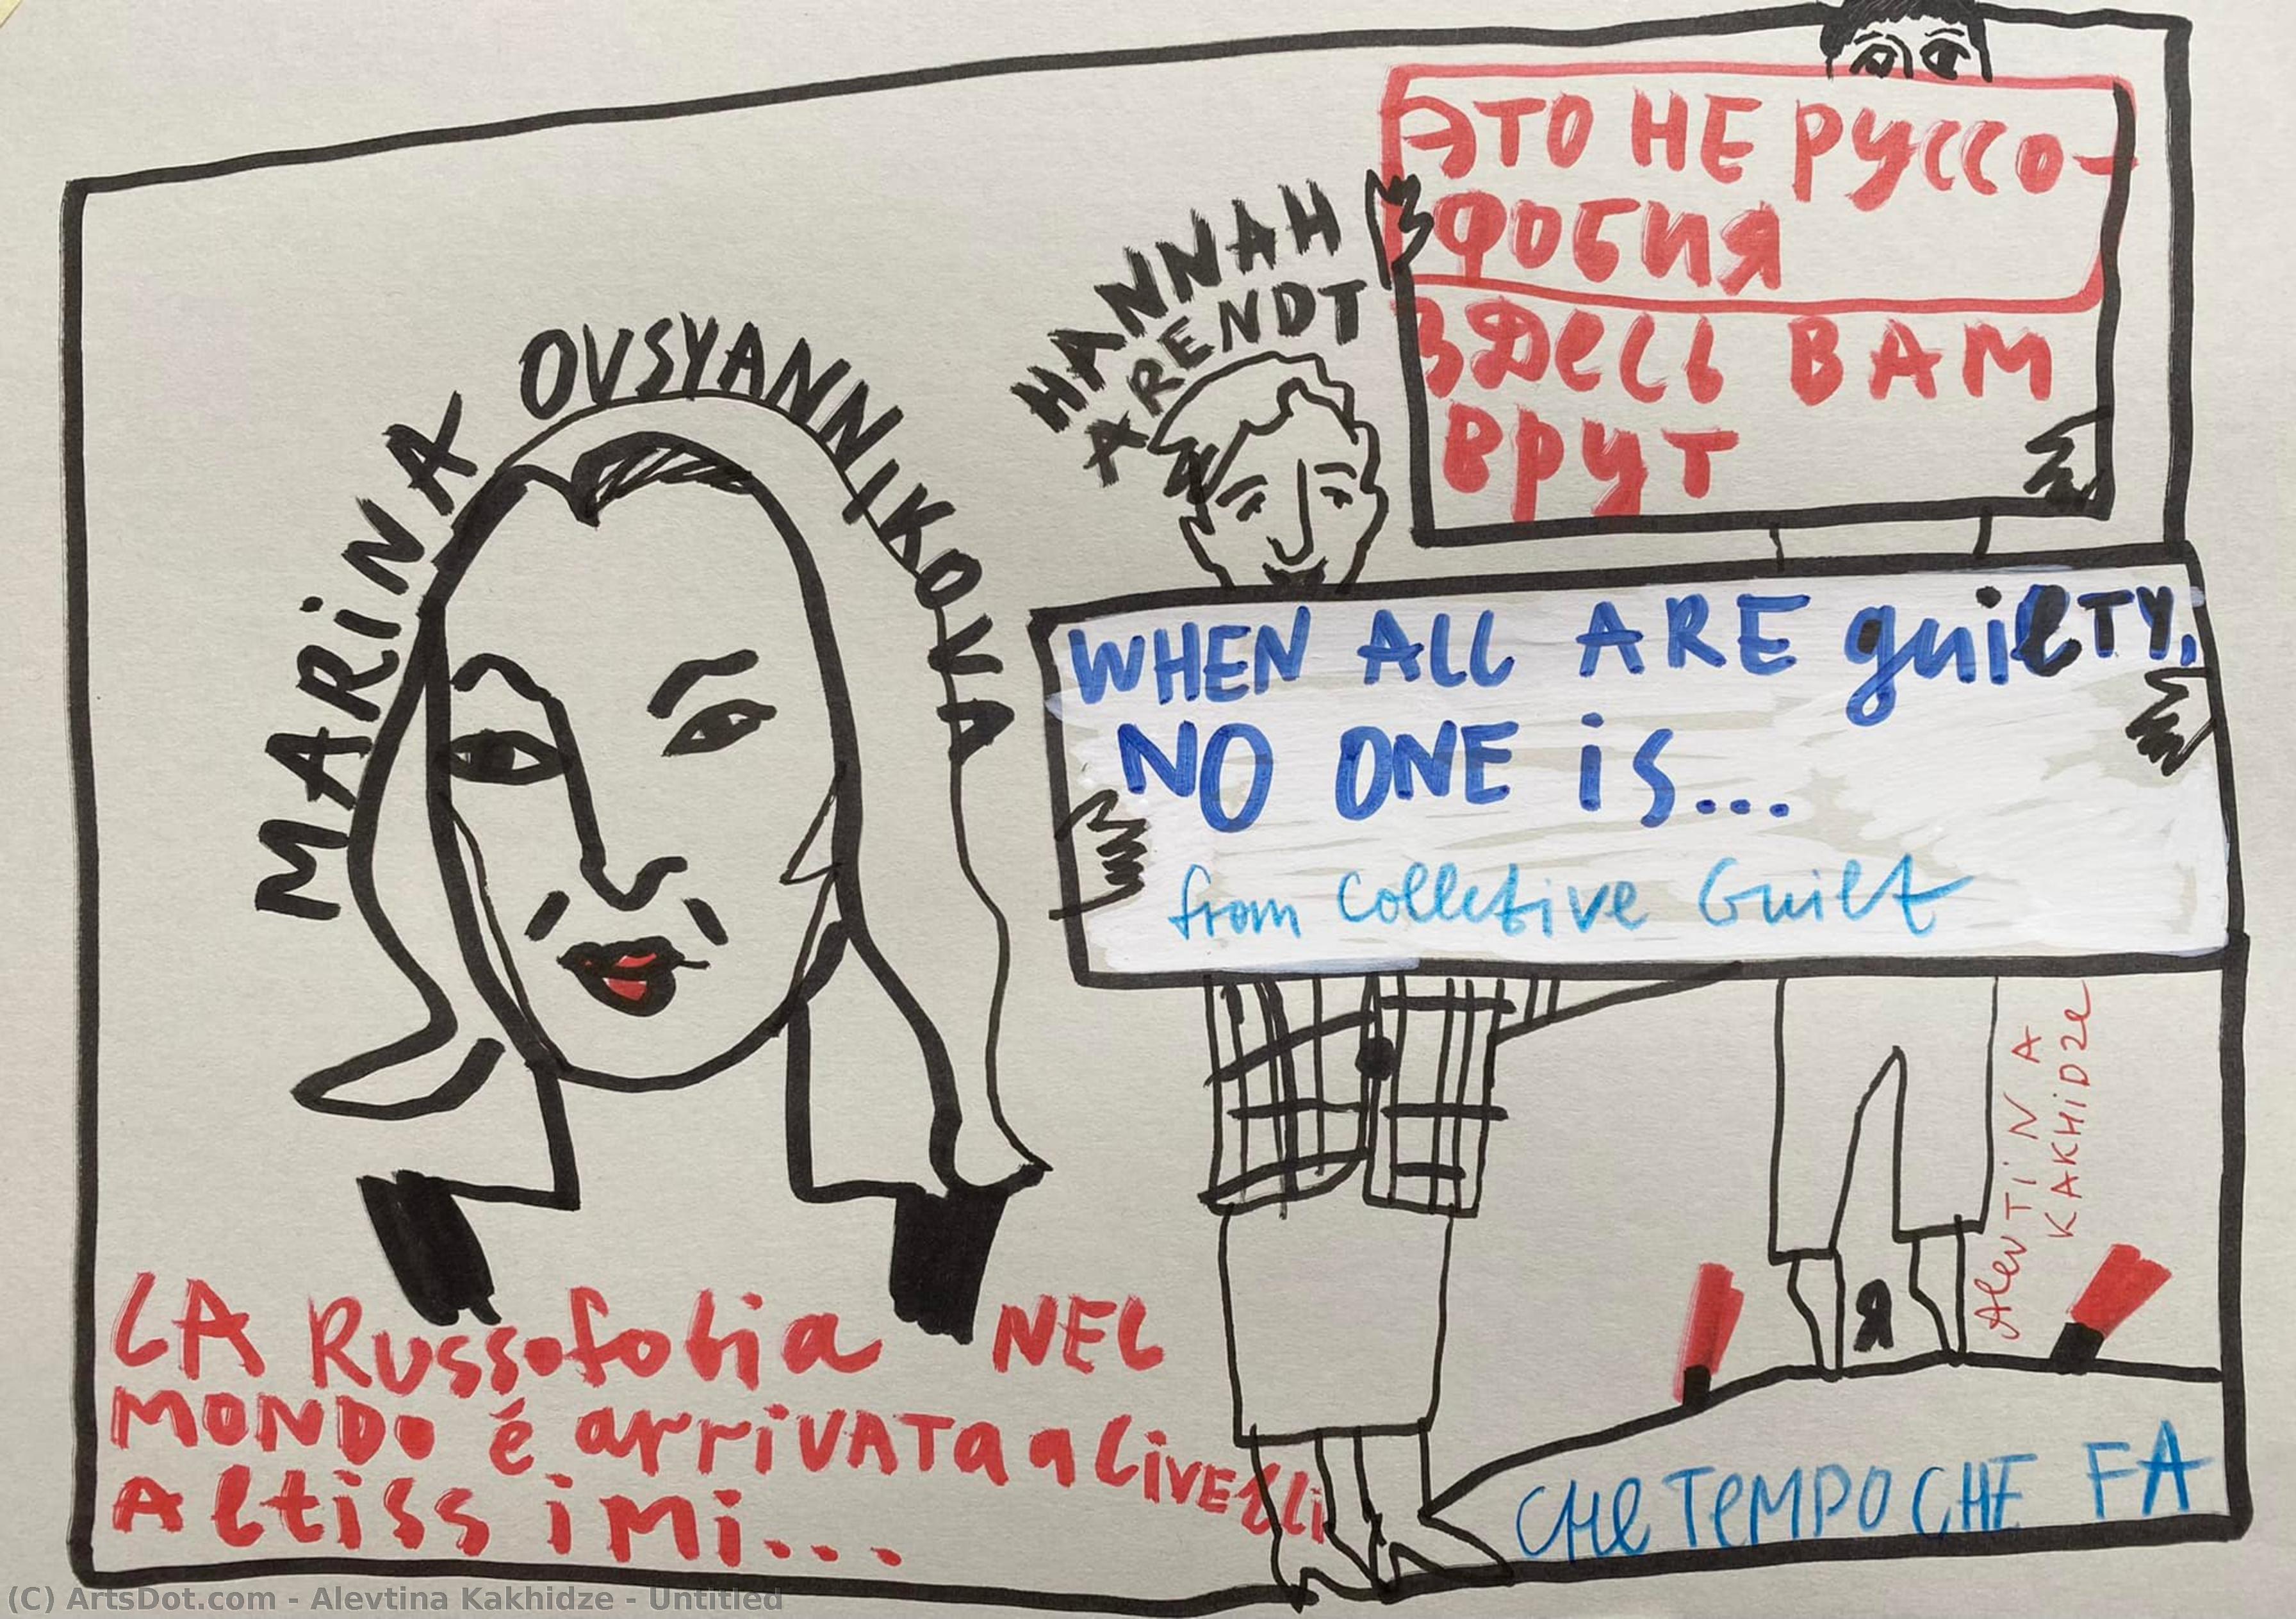 MARINA OVSYANNIKOVA
HANNAH
ARENDT
ЭТО НЕ РУССО-
ФОБИЯ
ЗДЕСЬ ВАМ
ВРУТ
WHEN ALL ARE guilTY,
NO ONE is...
from Colletive Guilt
AlevTiNA
KAKHiDZe
Я
LA Russofobia NEL
MONDO é arriVATa a LiVElli
Altissimi...
CHe TeMPO CHE FA
(C) ArtsDot.com - Alevtina Kakhidze - Untitled